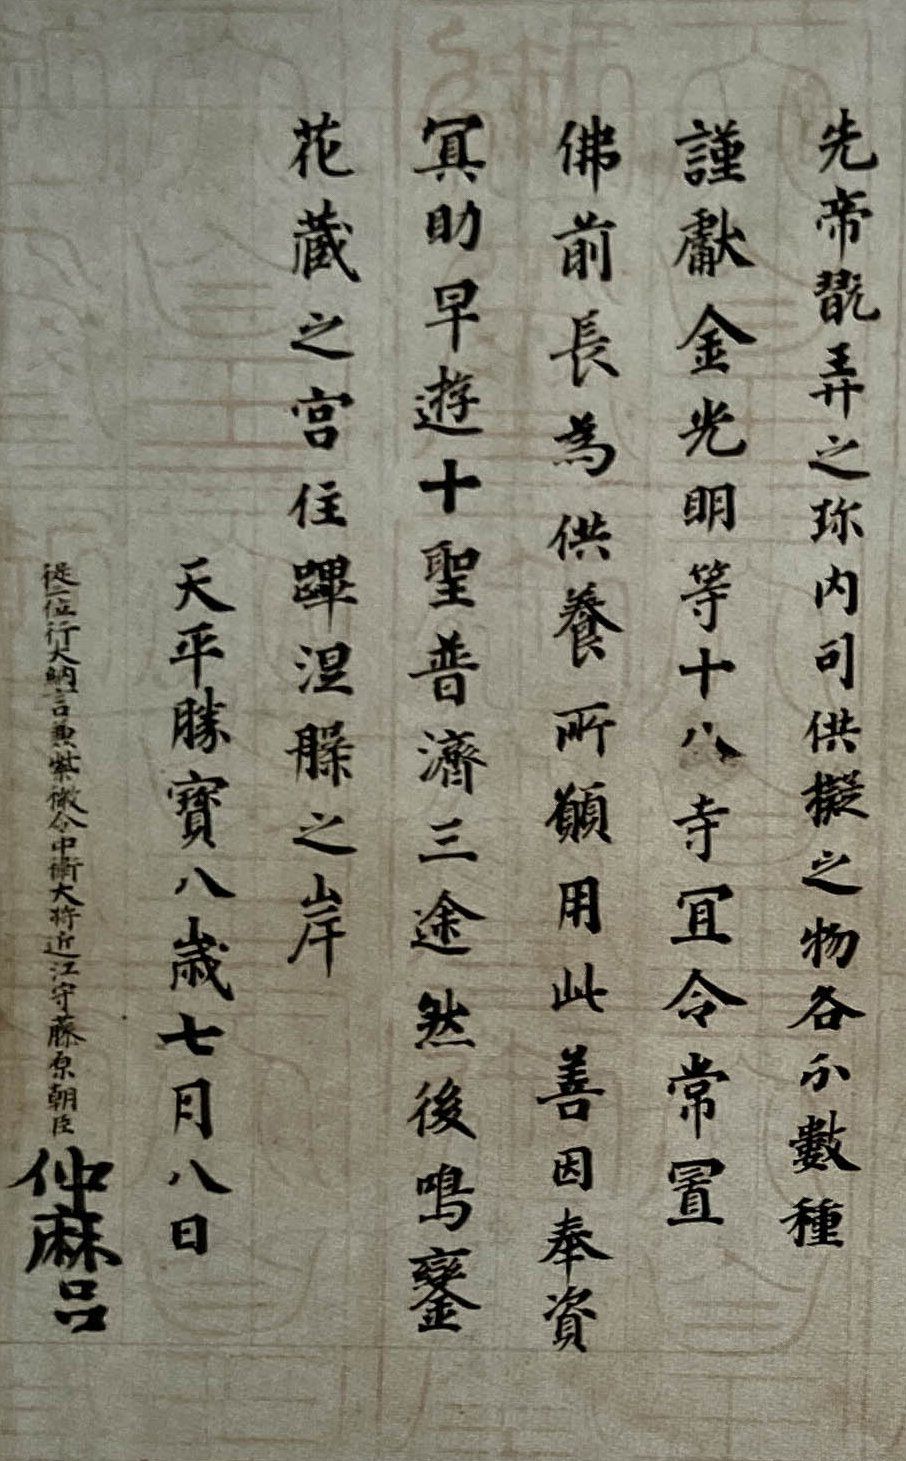 先帝翫弄之珎内司供擬之物各分數種
謹獻金光明等十八寺宜令常置
佛前長為供養所願用此善因奉資
冥助早遊十聖普濟三途然後鳴鑾
花蔵之宮住蹕涅槃之岸
天平勝寶八歳七月八日
從二位行大納言兼紫微令中衛大将近江守藤原朝臣仲麻呂